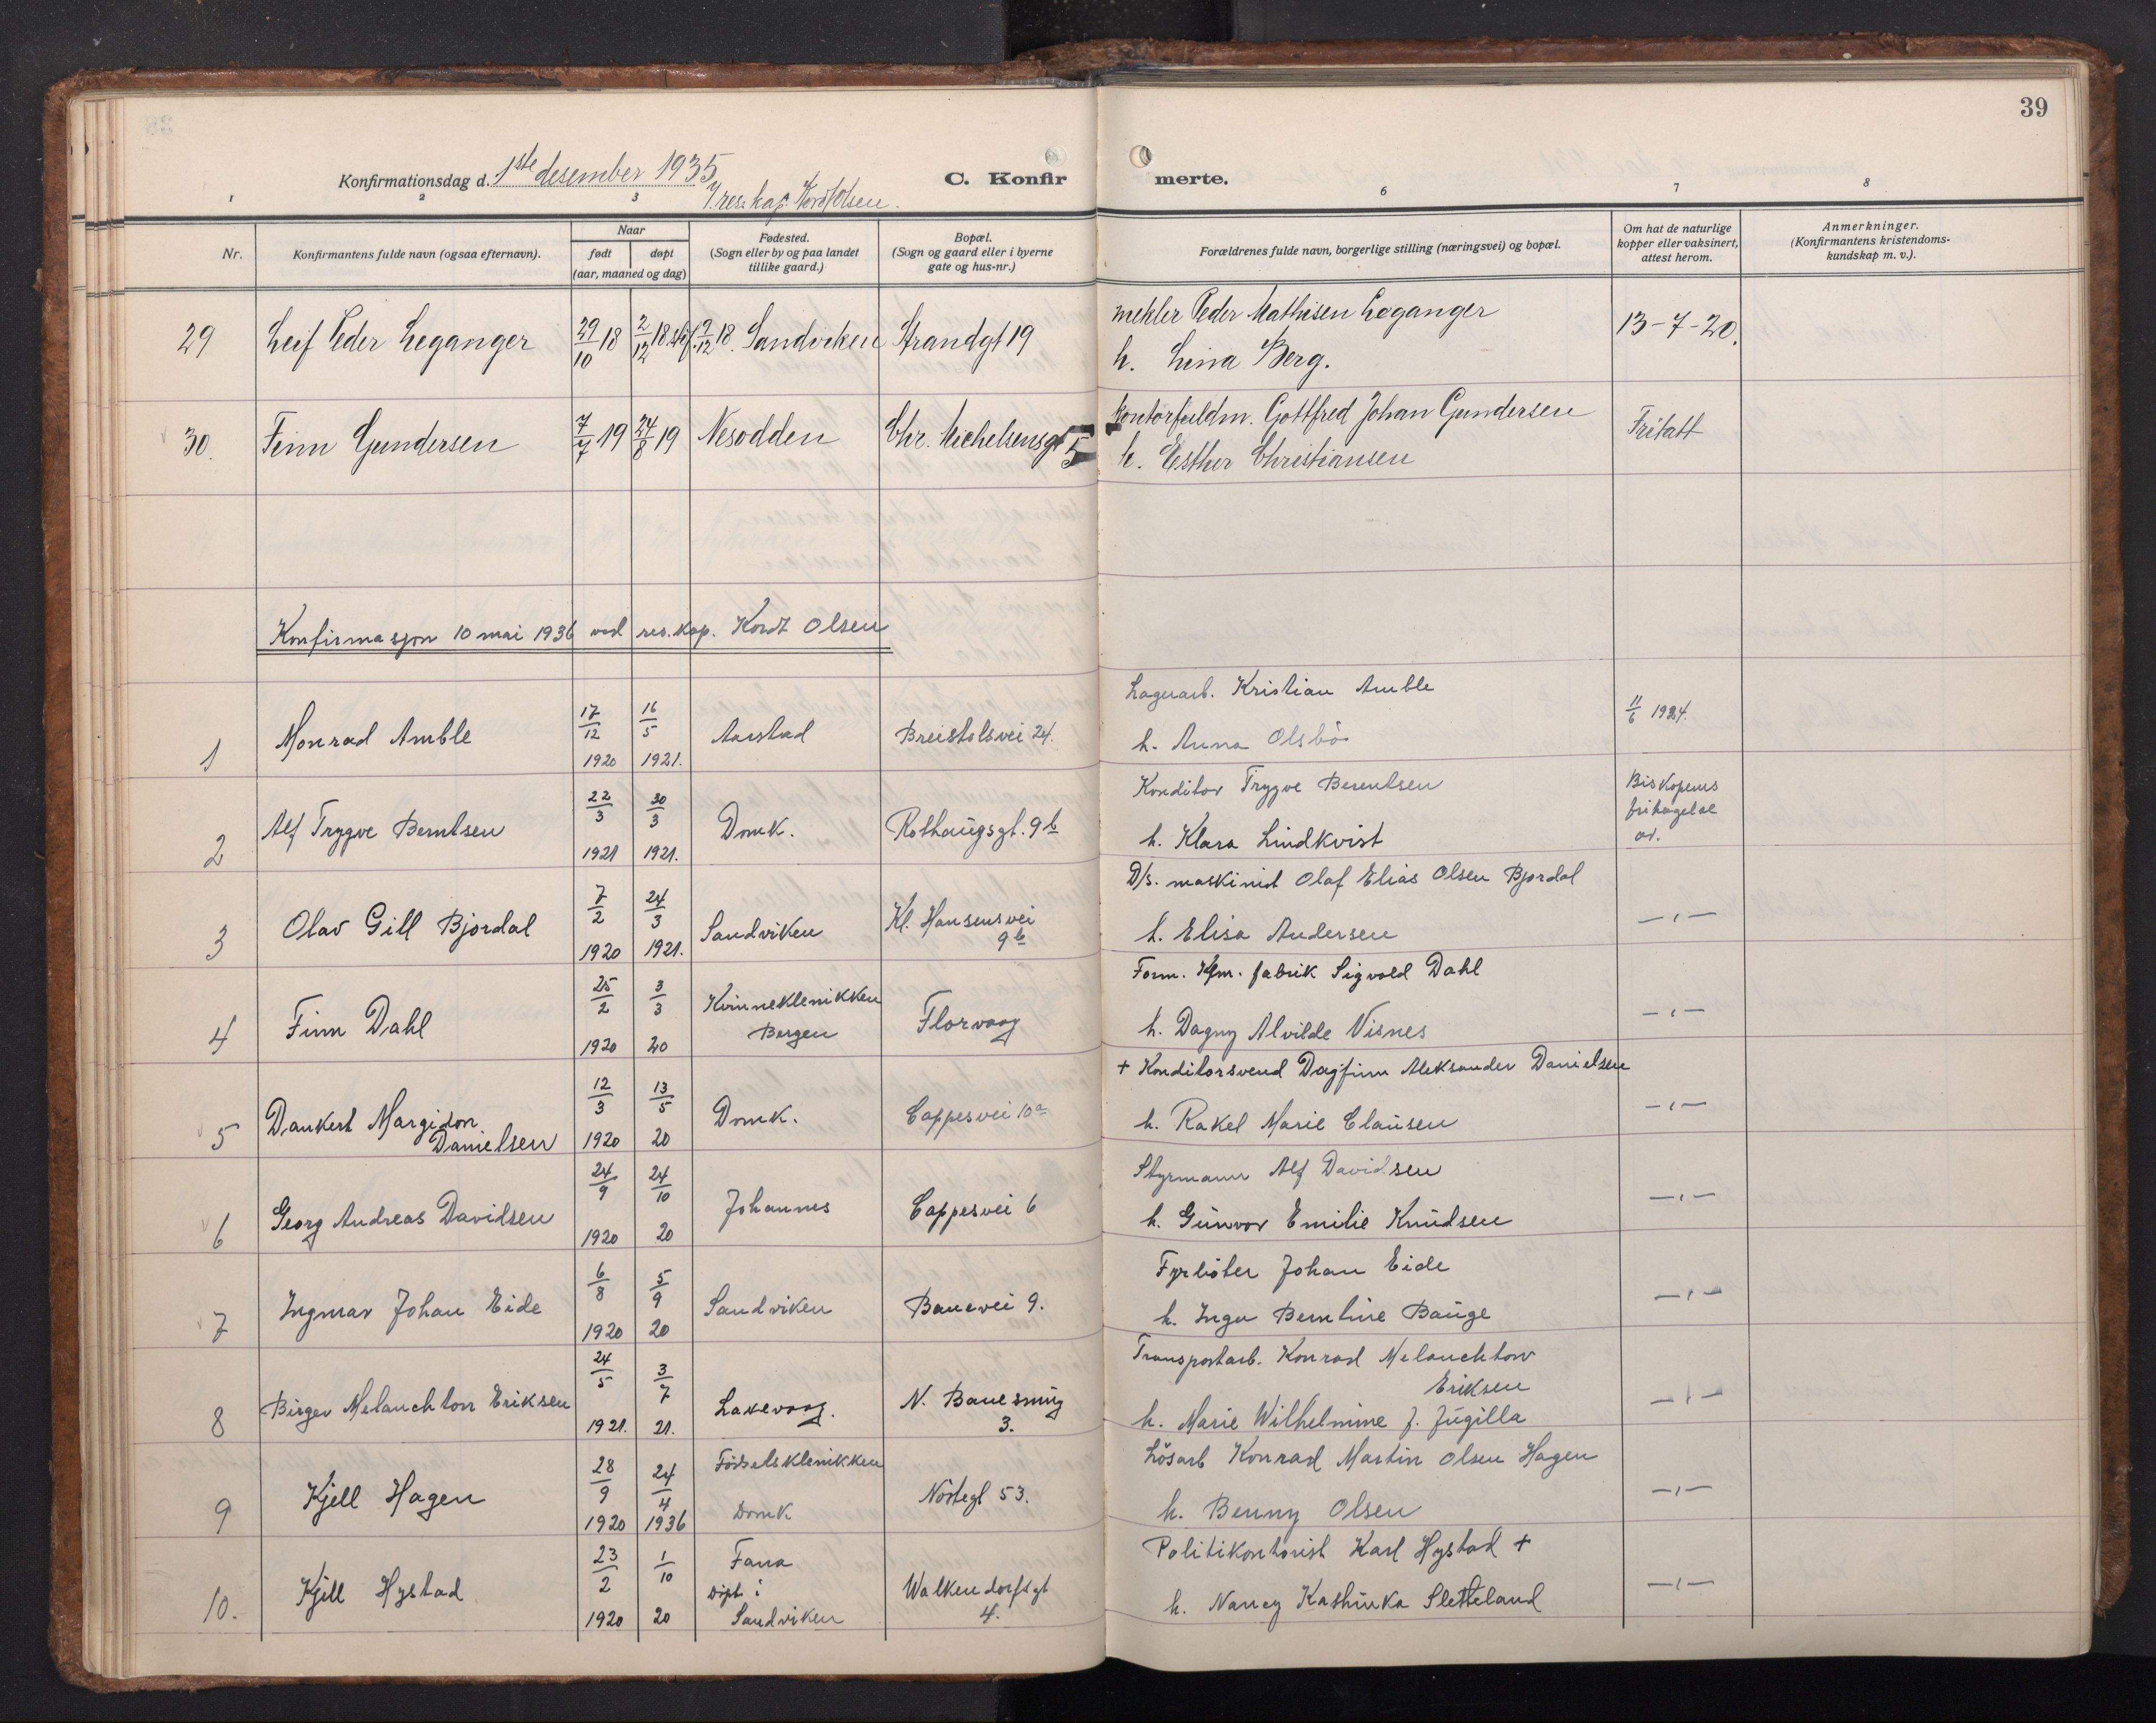 39
Konfirmationsdag d. 1ste desember 1935 C. Konfir merte.
v. res. kap. Kordt Olsen.
1 2 3 6 7 8
Nr. Konfirmantens fulde navn (ogsaa efternavn). Naar født døpt (aar, maaned og dag) Fødested. (Sogn eller by og paa landet tillike gaard.) Bopæl. (Sogn og gaard eller i byerne gate og hus-nr.) Forældrenes fulde navn, borgerlige stilling (næringsvei) og bopæl. Om hat de naturlige kopper eller vaksinert, attest herom. Anmerkninger. (Konfirmantens kristendoms-kundskap m. v.).
29 Leif Peder Leganger 29/10 18 2/12 18 9/12 18. Sandviken Strandgt 19 mekler Peder Mathisen Leganger 13-7-20.
h. Lina Berg.
30. Finn Gundersen 7/7 19 24/8 19 Nesodden Chr. Michelsensgt 5 kontorfuldm. Gottfred Johan Gundersen Fritatt
h. Esther Christiansen
Konfirmasjon 10 mai 1936 ved res. kap. Kordt Olsen
1 Monrad Amble 17/12 1920 16/5 1921. Aarstad Breistølsvei 24. Lagerarb. Kristian Amble 11/6 1924.
h. Anna Olsbö
2 Alf Trygve Berntsen 22/3 1921 30/3 1921. Domk. Rothaugsgt. 9b Konditor Trygve Berentsen Biskopens fritagelse av.
h. Klara Lindkvist
3 Olav Gill Bjordal 7/2 1920 24/3 1921. Sandviken Kl. Hansensvei 9b D/s. maskinist Olaf Elias Olsen Bjordal —"—
h. Elisa Andersen
4 Finn Dahl 25/2 1920 3/3 20 Kvinneklenikken Bergen Florvaag Form. Kfm. fabrik Sigvald Dahl —"—
h. Dagny Alvilde Visnes
5 Dankert Margidon Danielsen 12/3 1920 13/5 20 Domk. Cappesvei 10a + Konditorsvend Dagfinn Aleksander Danielsen —"—
h. Rakel Marie Clausen
6 Georg Andreas Davidsen 24/9 1920 24/10 20 Johannes Cappesvei 6 Styrmann Alf Davidsen —"—
h. Gunvor Emilie Knudsen
7 Ingmar Johan Eide 6/8 1920 5/9 20 Sandviken Banevei 9. Fyrböter Johan Eide —"—
h. Inga Berntine Bauge
8 Birger Melanchton Eriksen 24/5 1921. 3/7 21. Laksevaag. N. Banesmug 3. Transportarb. Konrad Melanchton Eriksen —"—
h. Marie Wilhelmine J. Jugilla
9 Kjell Hagen 28/9 1920 24/4 1936 Fødselsklenikken Domk Nöstegt 53. Lösarb Konrad Martin Olsen Hagen —"—
h. Benny Olsen
10. Kjell Hystad 23/2 1920 1/10 20 Fana Döpt i Sandviken Walkendorfsgt 4. Politikontorist Karl Hystad + —"—
h. Nancy Kathinka Sletteland